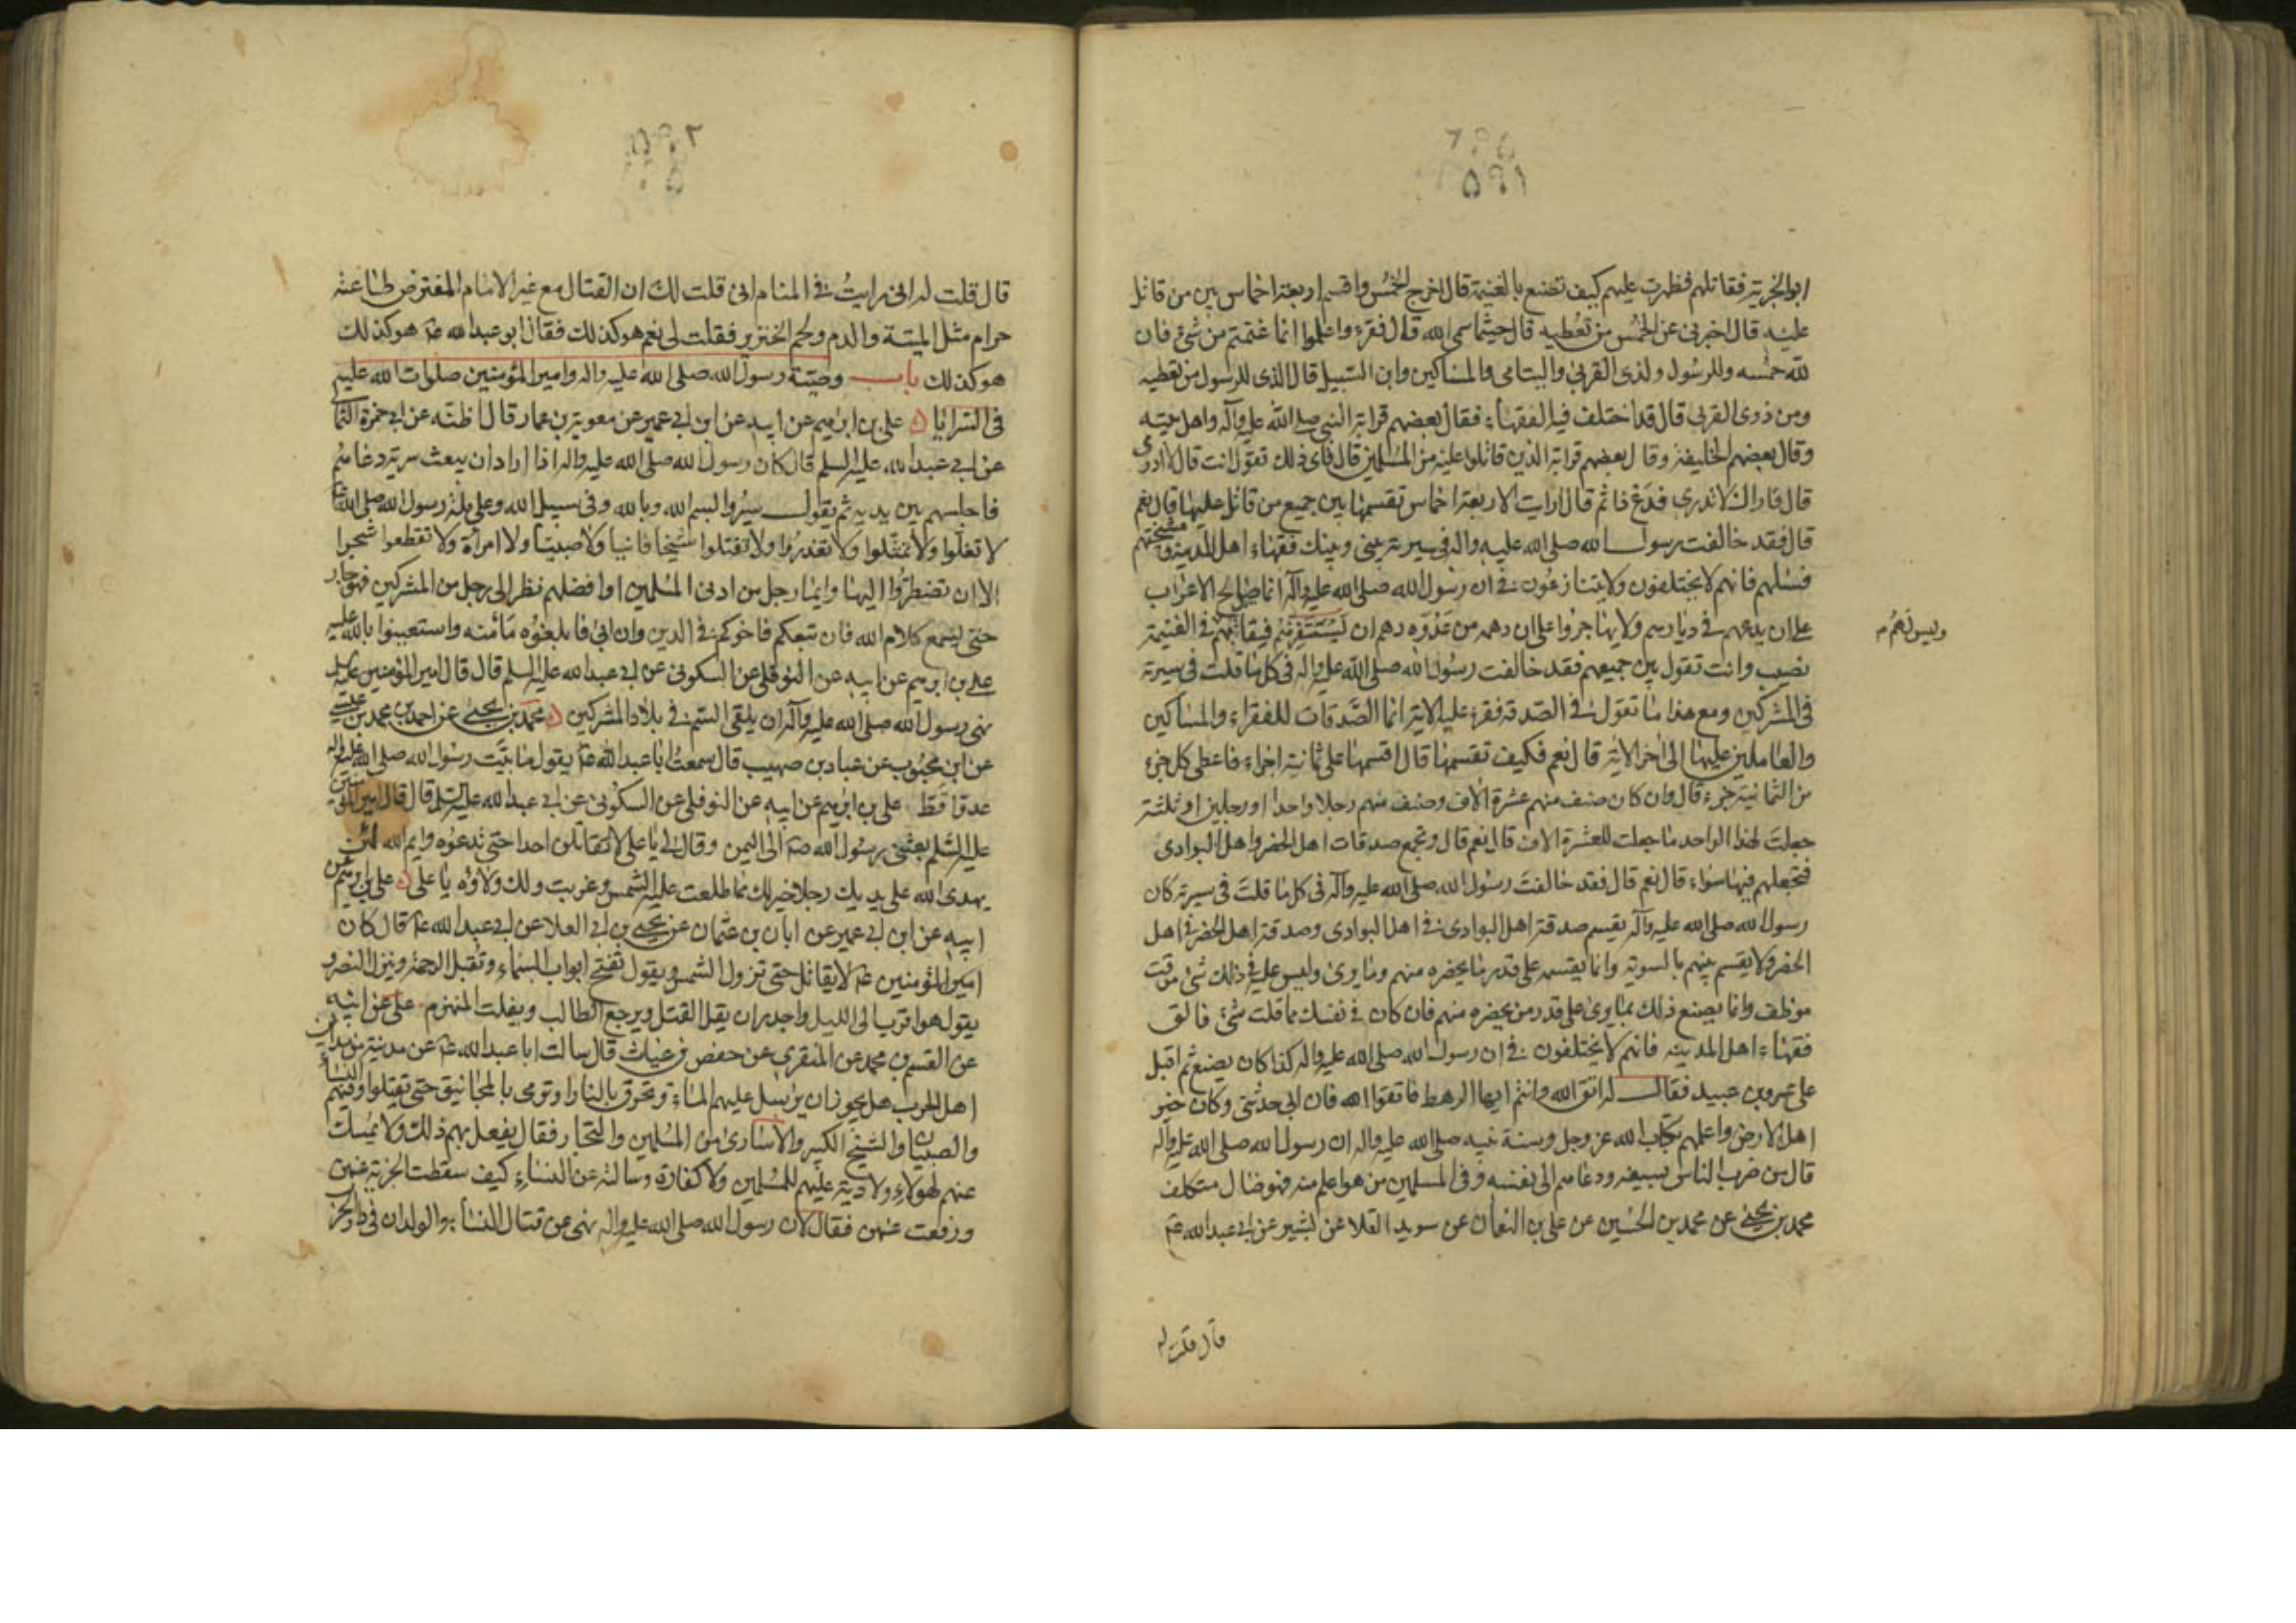 ٥٩١
ابوا الجزية فقاتلهم فظهرت عليهم كيف تصنع بالغنيمة قال اخرج الخمس واقسم اربعة اخماس بين من قاتل
عليه قال اخبرني عن الخمس من تعطيه قال حيثما سمى الله قال فقرء واعلموا انما غنمتم من شئ فان
لله خمسه وللرسول ولذى القربى واليتامى والمساكين وابن السبيل قال الذى للرسول من تعطيه
ومن ذوى القربى قال قد اختلف فيه الفقهاء فقال بعضهم قرابة النبى صلى الله عليه وآله واهل بيته
وقال بعضهم الخليفة وقال بعضهم قرابة الذين قاتلوا عليه من المسلمين قال فاى ذلك تقول انت قال لا ادرى
قال فاراك لا تدرى فدع ذا ثم قال ارايت الاربعة اخماس تقسمها بين جميع من قاتل عليها قال نعم
قال فقد خالفت رسول الله صلى الله عليه واله فى سيرته بينى وبينك فقهاء اهل المدينة ومشيختهم
فسلهم فانهم لا يختلفون ولا يتنازعون فى ان رسول الله صلى الله عليه وآله انما صالح الاعراب
على ان يدعهم فى ديارهم ولا يهاجروا على ان دهمه من عدوه دهم ان يستنفرهم فيقاتل بهم فى الغنيمة
وليس لهم م
نصيب وانت تقول بين جميعهم فقد خالفت رسول الله صلى الله عليه واله فى كل ما قلت فى سيرته
فى المشركين ومع هذا ما تقول فى الصدقة فقرء عليه الاية انما الصدقات للفقراء والمساكين
والعاملين عليها الى اخر الاية قال نعم فكيف تقسمها قال اقسمها على ثمانية اجزاء فاعطى كل جزء
من الثمانية جزء قال وان كان صنف منهم عشرة الاف وصنف منهم رجلا واحدا او رجلين او ثلثة
جعلت لهذا الواحد ما جعلت للعشرة الاف قال نعم قال وتجمع صدقات اهل الحضر واهل البوادى
فتجعلهم فيها سواء قال نعم قال فقد خالفت رسول الله صلى الله عليه وآله فى كل ما قلت فى سيرته كان
رسول الله صلى الله عليه وآله يقسم صدقة اهل البوادى فى اهل البوادى وصدقة اهل الحضر فى اهل
الحضر ولا يقسم بينهم بالسوية وانما يقسمه على قدر ما يحضره منهم وما يرى وليس عليه فى ذلك شئ موقت
موظف وانما يصنع ذلك بما يرى على قدر من يحضره منهم فان كان فى نفسك مما قلت شئ فالق
فقهاء اهل المدينة فانهم لا يختلفون فى ان رسول الله صلى الله عليه واله كذا كان يصنع ثم اقبل
على عمرو بن عبيد فقال له اتق الله وانتم ايها الرهط فاتقوا الله فان ابى حدثنى وكان خير
اهل الارض واعلمهم بكتاب الله عز وجل وسنة نبيه صلى الله عليه واله ان رسول الله صلى الله عليه واله
قال من ضرب الناس بسيفه ودعاهم الى نفسه وفى المسلمين من هو اعلم منه فهو ضال متكلف
محمد بن يحيى عن محمد بن الحسين عن على بن النعمان عن سويد القلا عن بشير عن ابى عبد الله عم
قال قلت له
٥٩٢
قال قلت له انى رايت فى المنام انى قلت لك ان القتال مع غير الامام المفترض طاعته
حرام مثل الميتة والدم ولحم الخنزير فقلت لى نعم هو كذلك فقال ابو عبد الله عم هو كذلك
هو كذلك باب وصية رسول الله صلى الله عليه واله وامير المؤمنين صلوات الله عليهم
فى السرايا على بن ابرهيم عن ابيه عن ابن ابى عمير عن معوية بن عمار قال اظنه عن ابى حمزة الثما
عن ابى عبد الله عليه السلم قال كان رسول الله صلى الله عليه واله اذا اراد ان يبعث سرية دعاهم
فاجلسهم بين يديه ثم يقول سيروا بسم الله وبالله وفى سبيل الله وعلى ملة رسول الله صلى الله
لا تغلوا ولا تمثلوا ولا تغدروا ولا تقتلوا شيخا فانيا ولا صبيا ولا امراة ولا تقطعوا شجرا
الا ان تضطروا اليها وايما رجل من ادنى المسلمين او افضلهم نظر الى رجل من المشركين فهو جار
حتى يسمع كلام الله فان تبعكم فاخوكم فى الدين وان ابى فابلغوه مامنه واستعينوا بالله عليه
على بن ابرهيم عن ابيه عن النوفلى عن السكونى عن ابى عبد الله عليه السلم قال قال امير المؤمنين عليه
نهى رسول الله صلى الله عليه وآله ان يلقى السم فى بلاد المشركين محمد بن يحيى عن احمد بن محمد بن عيسى
عن ابن محبوب عن عباد بن صهيب قال سمعت ابا عبد الله عم يقول ما بيت رسول الله صلى الله عليه واله
عدوا قط على بن ابرهيم عن ابيه عن النوفلى عن السكونى عن ابى عبد الله عليه السلم قال قال امير المؤمنين
عليه السلم بعثنى رسول الله صم الى اليمن وقال لى يا على لا تقاتلن احدا حتى تدعوه وايم الله لئن
يهدى الله على يديك رجلا خير لك مما طلعت عليه الشمس وغربت ولك ولاؤه يا على على بن ابرهيم عن
ابيه عن ابن ابى عمير عن ابان بن عثمان عن يحيى بن ابى العلا عن ابى عبد الله عم قال كان
امير المؤمنين عم لا يقاتل حتى تزول الشمس ويقول تفتح ابواب السماء وتقبل الرحمة وينزل النصر و
يقول هو اقرب الى الليل واجدر ان يقل القتل ويرجع الطالب ويفلت المنهزم على عن ابيه
عن القسم بن محمد عن المنقرى عن حفص بن غياث قال سالت ابا عبد الله عم عن مدينة من مداين
اهل الحرب هل يجوز ان يرسل عليهم الماء وتحرق بالنار او ترمى بالمجانيق حتى تقتلوا وفيهم النساء
والصبيان والشيخ الكبير والاسارى من المسلمين والتجار فقال يفعل بهم ذلك ولا يمسك
عنهم لهؤلاء ولا دية عليهم للمسلمين ولا كفارة وسالته عن النساء كيف سقطت الجزية عنهن
ورفعت عنهن فقال لان رسول الله صلى الله عليه واله نهى عن قتال النساء والولدان فى دار الحر